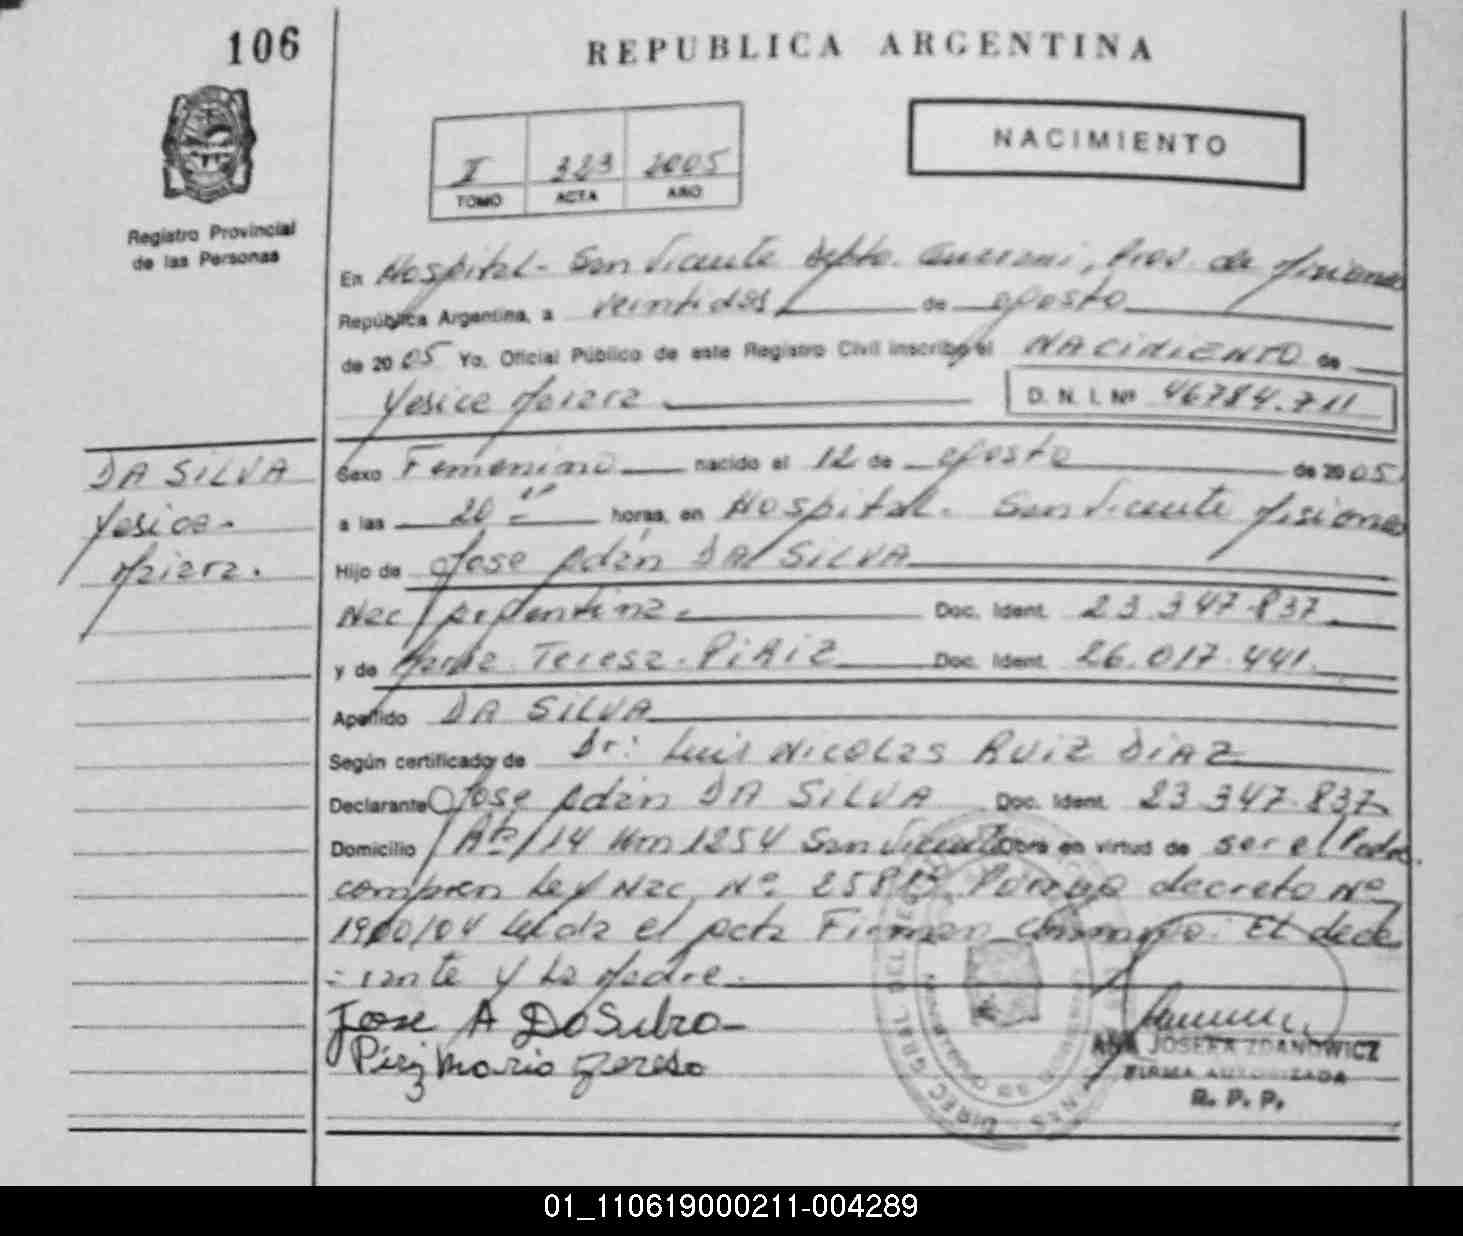 106
REPUBLICA ARGENTINA
NACIMIENTO
I 323 2005
TOMO ACTA AÑO
Registro Provincial
de las Personas
En Hospital - San Vicente Depto. Guarani, Prov. de Misiones
República Argentina, a veintidos de agosto
de 2005 Yo, Oficial Público de este Registro Civil inscribo el NACIMIENTO de
Yesica Maiara D. N. I. Nº 46784.711
DA SILVA
Yesica -
Maiara.
Sexo Femenino nacido el 12 de agosto de 2005
a las 20 horas, en Hospital. San Vicente Misiones
Hijo de Jose Adan DA SILVA
Nac Argentina. Doc. Ident. 23.347.837
y de Maria Teresa PIRIZ Doc. Ident. 26.017.441
Apellido DA SILVA
Según certificado de Dr: Luis Nicolas RUIZ DIAZ
Declarante Jose Adan DA SILVA Doc. Ident. 23.347.837
Domicilio Rta 14 Km 1254 San Vicente Obra en virtud de ser el Padre
Ley Nac. Nº decreto Nº
Leida el acta Firman conmigo. El decla
- rante y La Madre.
Jose A DaSilva
Piriz Maria Tereza
ANA JOSEFA ZDANOWICZ
FIRMA AUTORIZADA
R. P. P.
01_110619000211-004289